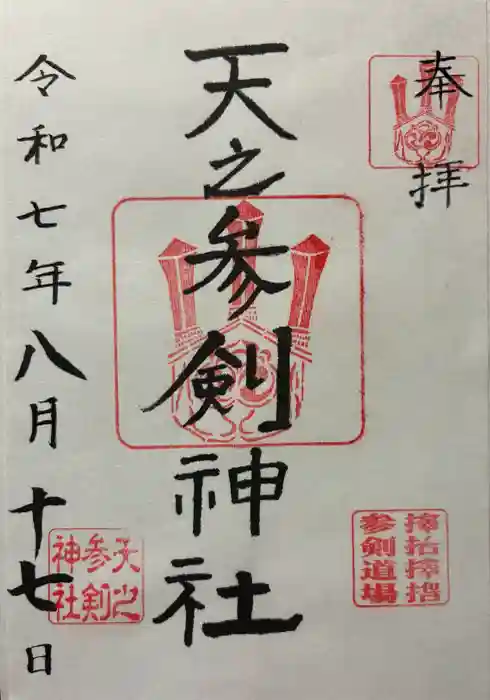 奉拝
天之参剣神社
令和七年八月十七日
参剣道場
天之
参剣
神社